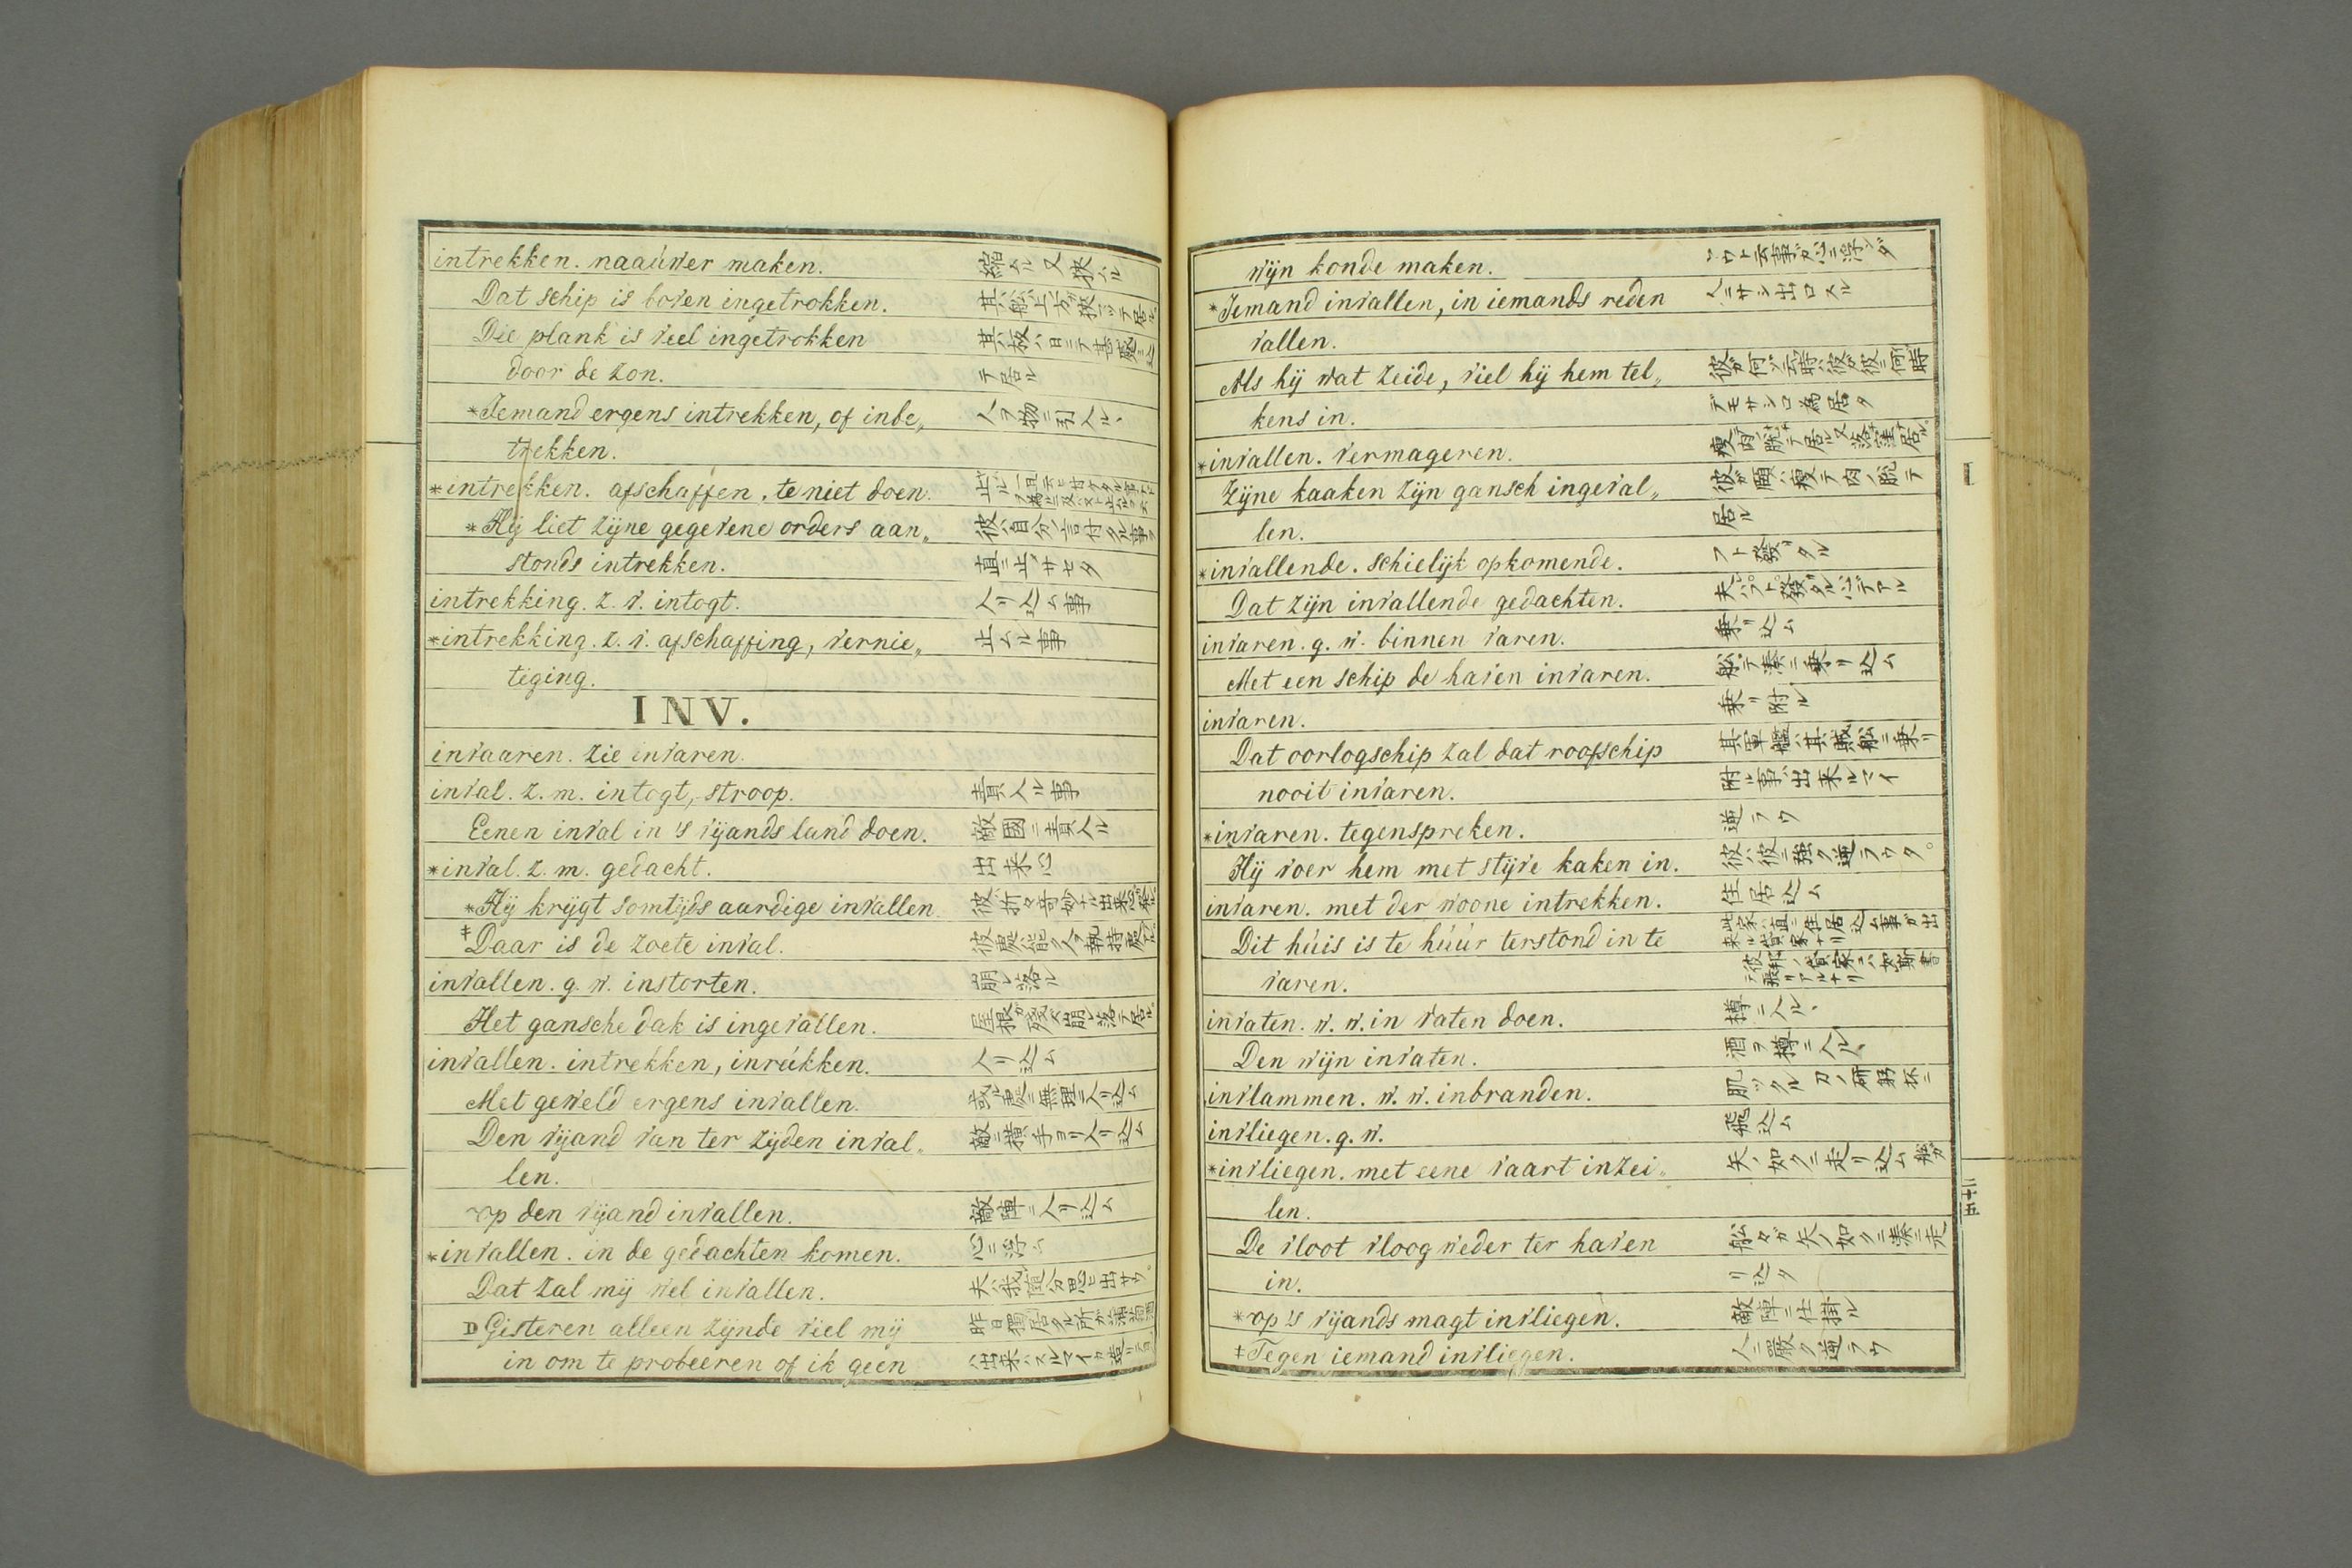 intrekken. naaúwer maken. 縮ムル又狹ムル
Dat schip is boven ingetrokken. 其舩ハ上ガ狹マツテ居ル
Die plank is veel ingetrokken 其板ハ日ニテ甚
door de zon. テ居ル
*Iemand ergens intrekken, of inbe„ 人ヲ物ニ引入ル、
trekken.
*intrekken. afschaffen, te niet doen. 止ル
*Hij liet zijne gegevene orders aan„ 彼ハ自分ノ言付タル事ヲ
stonds intrekken. 直ニ止サセタ
intrekking. z. v. intogt. 入リ込ム事
*intrekking. z. v. afschaffing, vernie„ 止ムル事
teging.
INV.
invaaren. zie invaren.
inval. z. m. intogt, stroop. 責入ル事
Eenen inval in 's vijands land doen. 敵國ニ責入ル
*inval. z. m. gedacht. 出来心
*Hij krijgt somtijds aardige invallen. 彼ハ折々奇妙ナル出来心
‡Daar is de zoete inval.
invallen. g. w. instorten. 崩レ落ル
Het gansche dak is ingevallen. 屋根ガ殘ラズ崩レ落テ居ル
invallen. intrekken, inrúkken. 入リ込ム
Met geweld ergens invallen. 或ル處ニ無理ニ入リ込ム
Den vijand van ter zijden inval„ 敵ニ横手ヨリ入リ込ム
len.
op den vijand invallen. 敵陣ニ入リ込ム
*invallen. in de gedachten komen. 心ニ浮ム
Dat zal mij wel invallen. 夫ハ我随分思ヒ出サウ。
D Gisteren alleen zijnde viel mij 昨日獨居タル所ガ
in om te probeeren of ik geen 出来ハスルマイカ
wijn konde maken. ト云事ガ心ニ浮ンダ
*Iemand invallen, in iemands reden 人ニサシ出口スル
vallen.
Als hij wat zeide, viel hij hem tel„ 彼ガ何ゾ云時ハ彼ガ彼ニ何時
kens in. デモサシ口為居タ
*invallen. vermageren. 瘦肉ノ脱テ居ル又落窪テ居ル
Zijne kaaken zijn gansch ingeval„ 彼ガ頤ハ瘦テ肉ノ脱テ
len. 居ル
*invallende. schielijk opkomende. フト發ツタル
Dat zijn invallende gedachten. 夫ハフト發ツタル心デアル
invaren. g. w. binnen varen. 乗リ込ム
Met een schip de haven invaren. 舩ニテ湊ニ乗リ込ム
invaren. 乗リ附ル
Dat oorlogschip zal dat roofschip 其軍艦ハ其賊舩ニ乗リ
nooit invaren. 附ル事ハ出来ルマイ
*invaren. tegenspreken. 逆ラウ
Hij voer hem met stijve kaken in. 彼ハ彼ニ強ク逆ラウタ。
invaren. met der woone intrekken. 住居込ム
Dit húis is te húúr terstond in te 此家ハ直ニ住居込ム事ガ出来ル貸家ナリ
varen.
invaten. w. w. in vaten doen. 樽ニ入ル、
Den wijn invaten. 酒ヲ樽ニ入ル、
invlammen. w. w. inbranden.
invliegen. g. w. 飛込ム
*invliegen. met eene vaart inzei„ 矢ノ如クニ走リ込ム舩ガ
len.
De vloot vloog weder ter haven 舩々ガ矢ノ如クニ湊ニ走
in. リ込タ
*op 's vijands magt invliegen. 敵陣ニ仕掛ル
‡Tegen iemand invliegen. 人ニ嚴ク逆ラウ
I
二十五